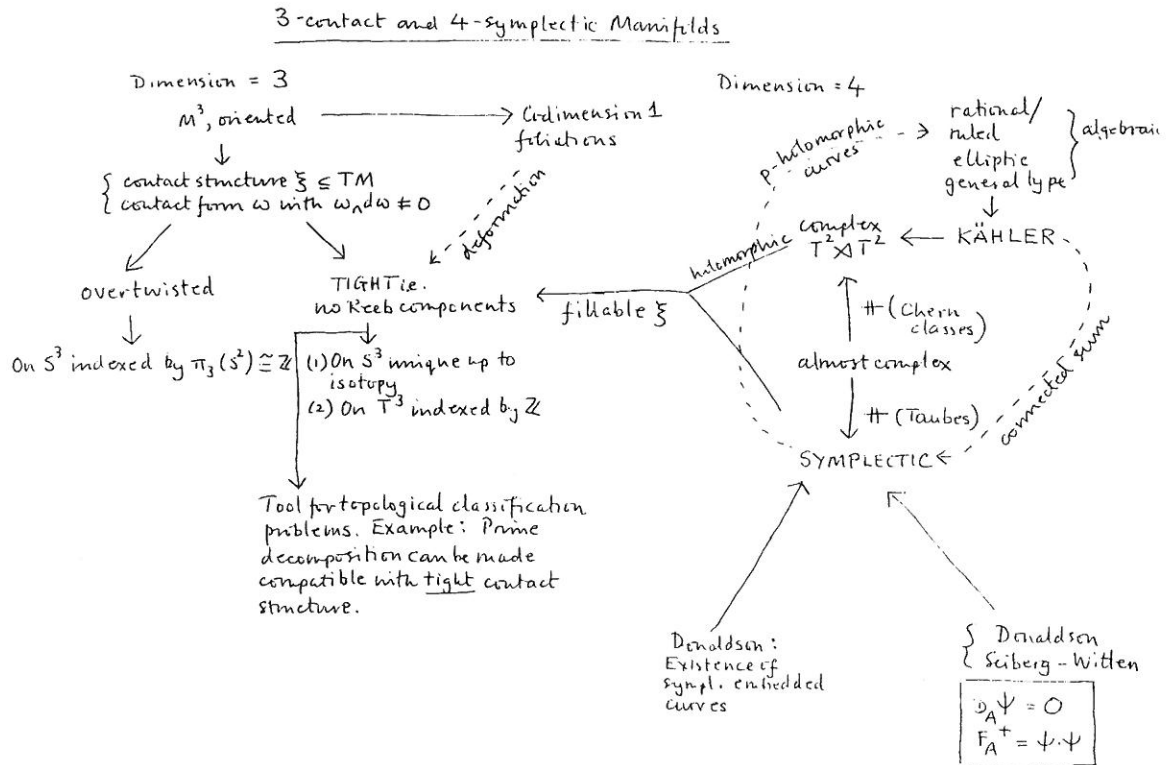 3-contact and 4-symplectic Manifolds
Dimension = 3
M³, oriented
Codimension 1
foliations
{ contact structure ξ ⊆ TM
{ contact form ω with ω∧dω ≠ 0
deformation
overtwisted
TIGHT i.e.
no Reeb components
On S³ indexed by π₃(S²) ≅ ℤ
(1) On S³ unique up to
isotopy
(2) On T³ indexed by ℤ
Tool for topological classification
problems. Example: Prime
decomposition can be made
compatible with tight contact
structure.
Dimension = 4
rational/
ruled
elliptic
general type
} algebraic
p-holomorphic
curves
KÄHLER
complex
T² ⋊ T²
holomorphic
fillable ξ
# (Chern
classes)
almost complex
# (Taubes)
connected sum
SYMPLECTIC
Donaldson :
Existence of
sympl. embedded
curves
{ Donaldson
{ Seiberg - Witten
D_Aψ = 0
F_A⁺ = ψ·ψ